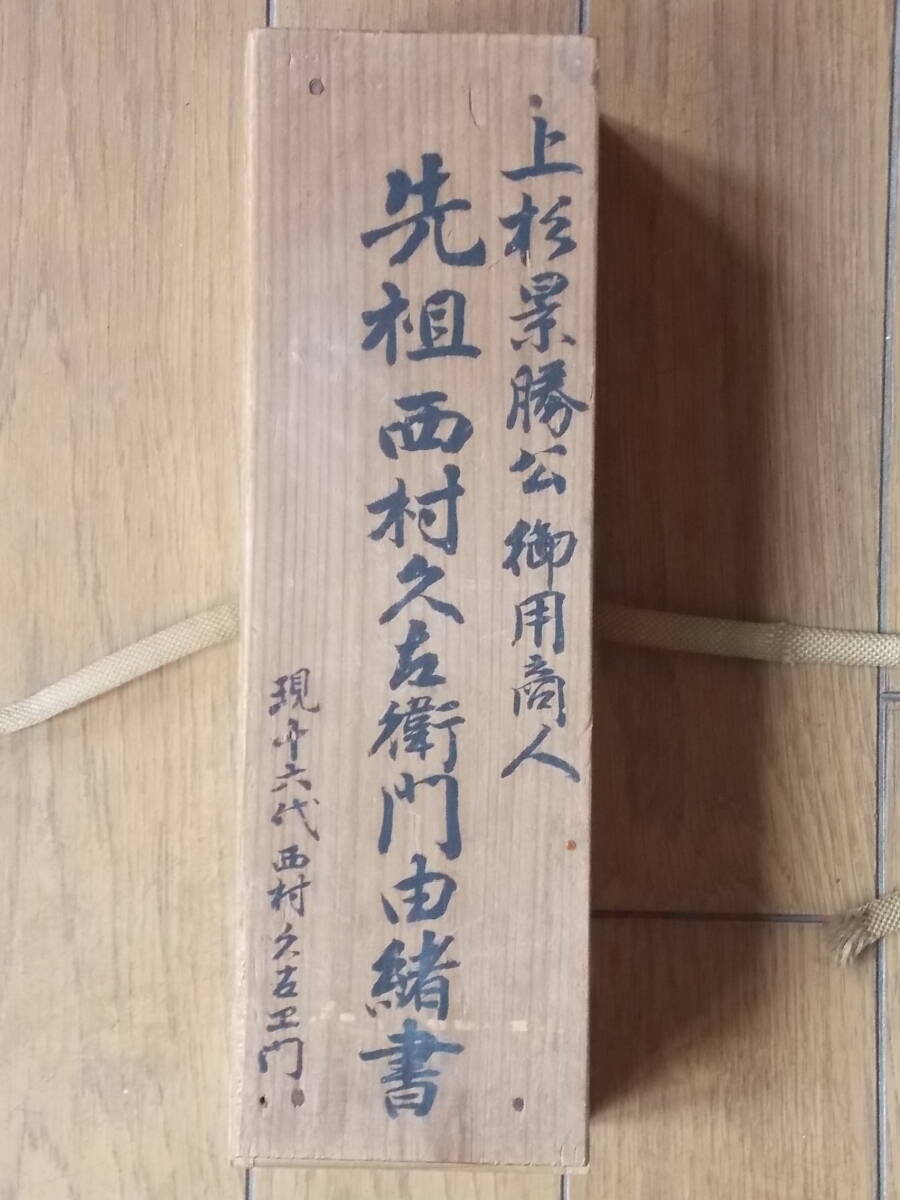 上杉景勝公御用商人
先祖西村久左衛門由緒書
現十六代西村久左エ門